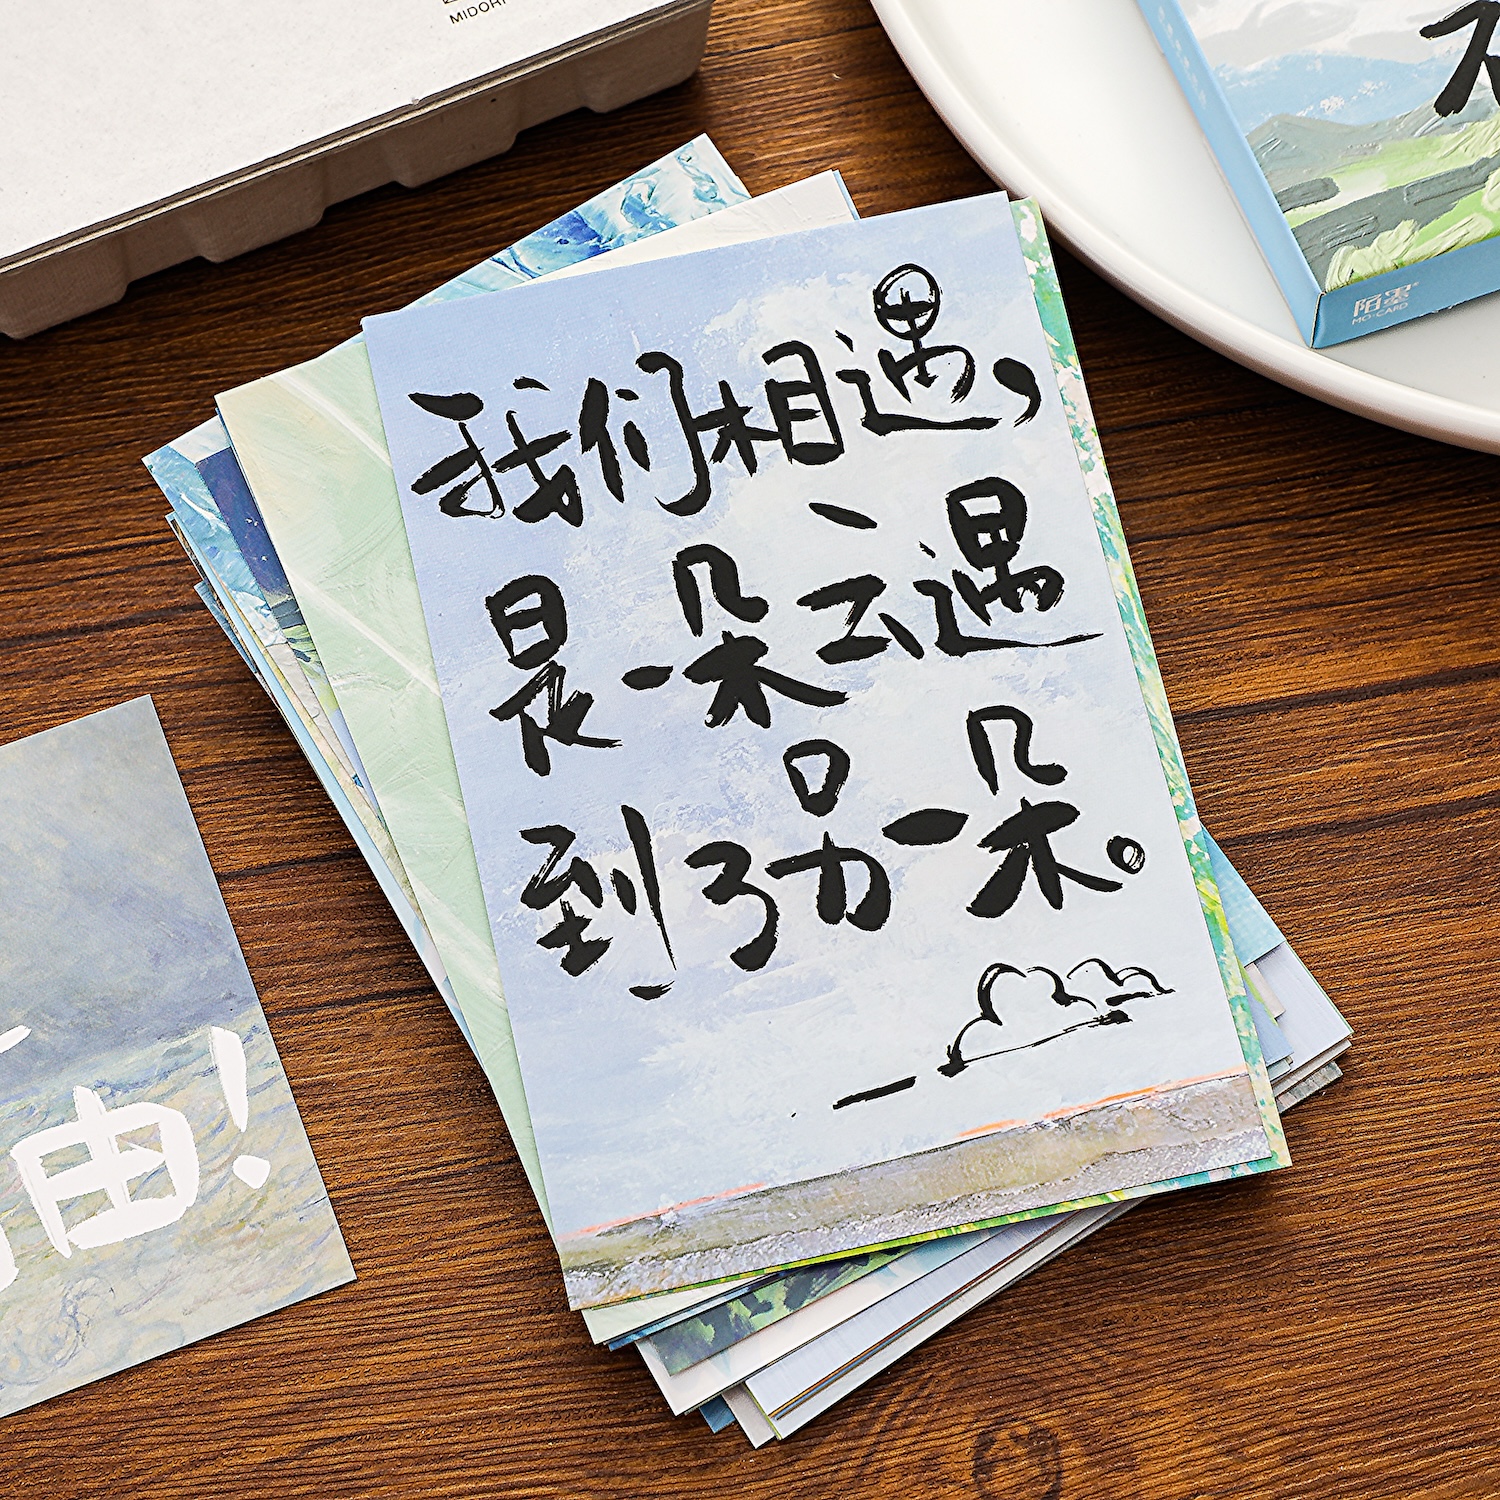 MIDORI
我们相遇,
是一朵云遇
到了另一朵。
陌墨
MO·CARD
由!